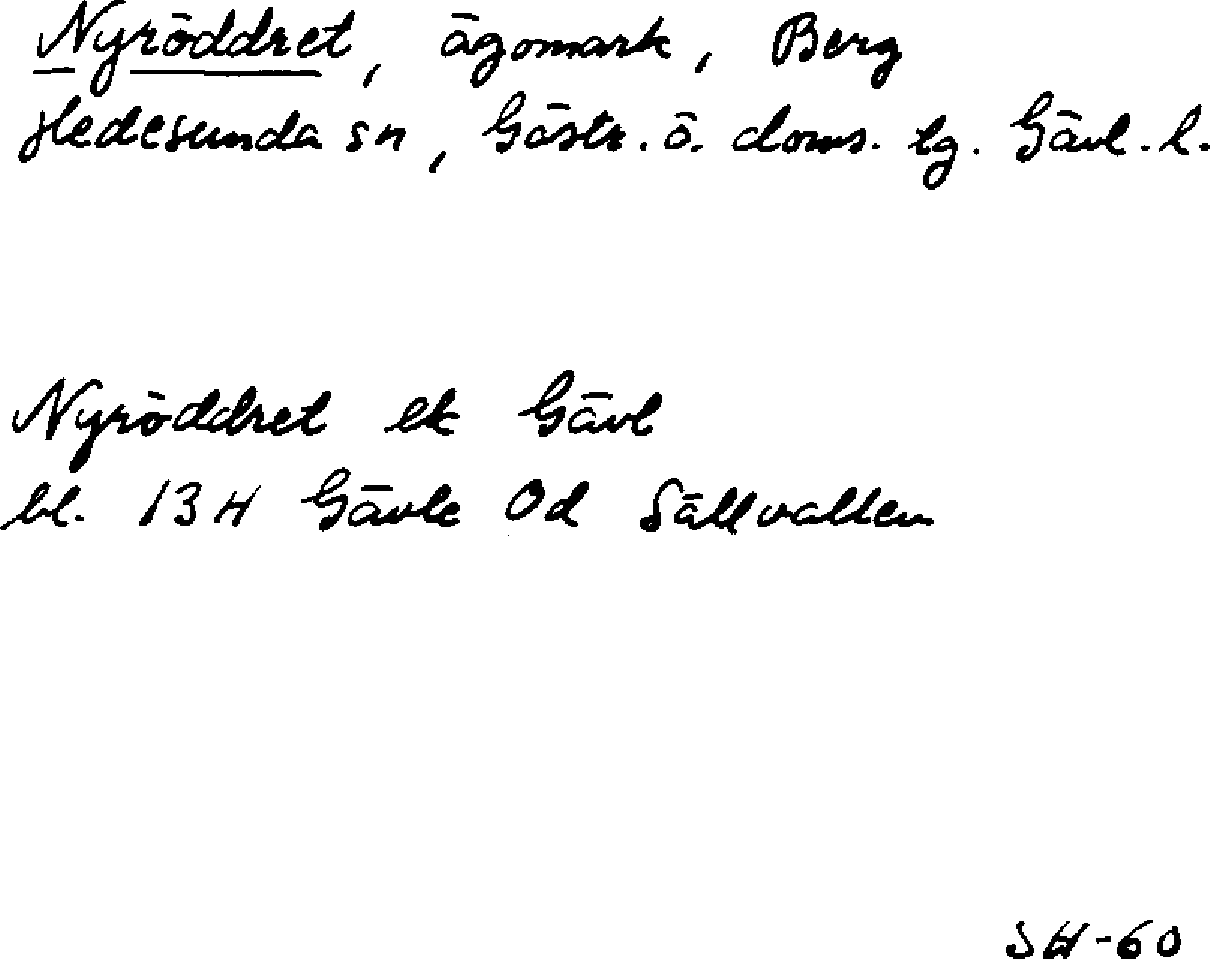 Nyröddret, ägomark, Berg
Hedesunda sn, Gästr. ö. doms. lg. Gävl. l.
Nyröddret ek Gävl
bl. 13 H Gävle 0d Sällvallen
SH-60